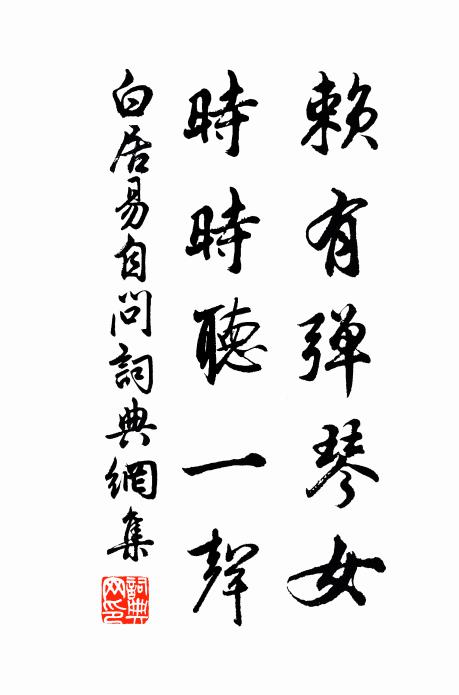 賴有弹琴女
時時聽一聲
白居易自問詞典網集
詞典网印